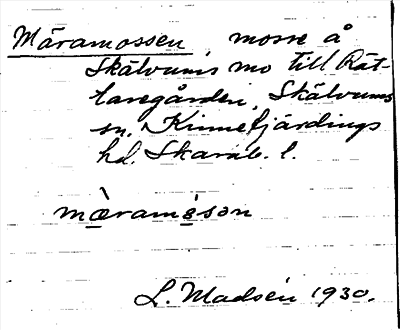 Märamossen, mosse å
Skälvums mo till Rät-
taregården, Skälvums
sn, Kinnefjärdings
hd. Skarab. l.
mæ̀ramòsən
L. Madsén 1930.